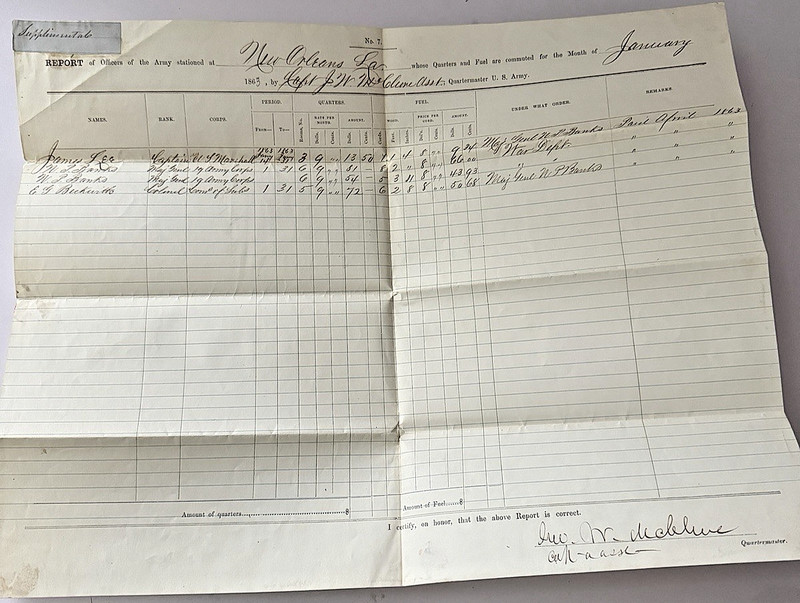 Supplimental
No. 7.
REPORT of Officers of the Army stationed at New Orleans La whose Quarters and Fuel are commuted for the Month of January
1863, by Capt J W McClure Asst. Quartermaster U. S. Army.
NAMES. RANK. CORPS. PERIOD. QUARTERS. FUEL. UNDER WHAT ORDER. REMARKS
FROM— TO— Rooms, No. RATE PER MONTH. AMOUNT. WOOD. PRICE PER CORD. AMOUNT.
Dolls. Cents. Dolls. Cents. Cords. Feet. Inches. Dolls. Cents. Dolls. Cents.
1863 1863
James Captain U S 31 3 9 " 13 50 1 4 8 " 9 24 Maj Genl N P Banks Paid April 1863
N P Banks Maj Genl 19 Army Corps 1 31 6 9 " 81 — 8 2 " 8 " 66 00 War Dept. " " "
N P Banks Maj Genl 19 Army Corps 6 9 " 54 — 5 3 11 8 " 43 93 " " " " "
E G Beckwith Colonel Comy of Subs 1 31 5 9 " 72 — 6 2 8 8 " 50 68 Maj Genl N P Banks " " "
Amount of quarters, $
Amount of Fuel $
I certify, on honor, that the above Report is correct.
Jno. W. McClure
Quartermaster.